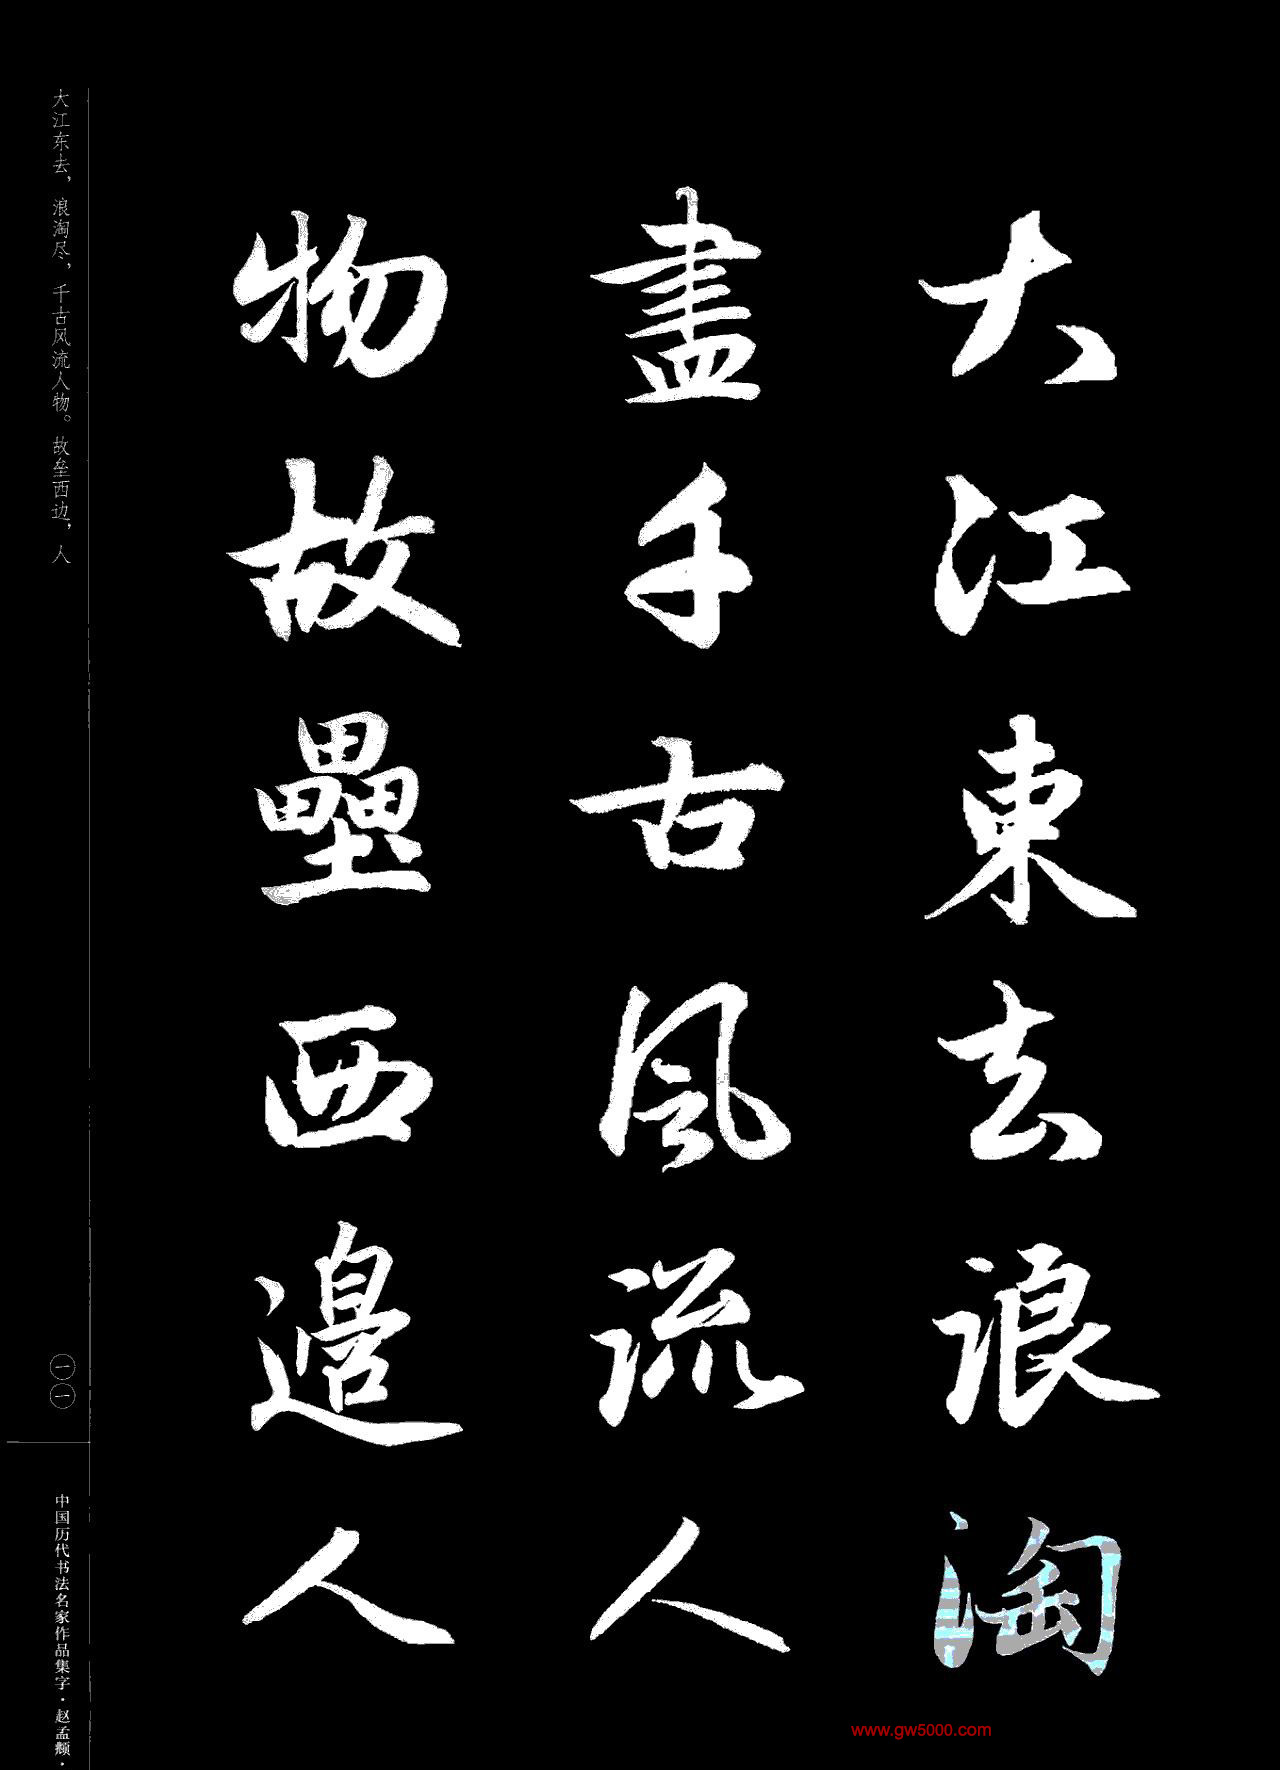 大江東去浪淘
盡千古風流人
物故壘西邊人
大江东去，浪淘尽，千古风流人物。故垒西边，人
一一
中国历代书法名家作品集字·赵孟頫·
www.gw5000.com